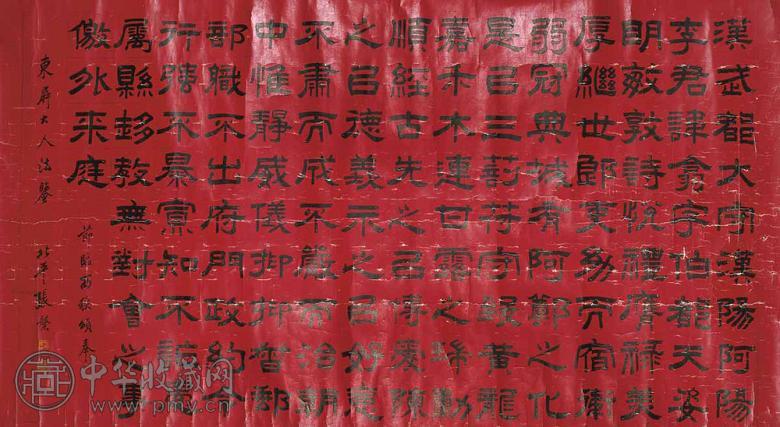 漢武都大守漢陽阿陽
李君諱翕字伯都天姿
朗敏敦詩悅禮膺祿美
厚繼世郎吏幼而宿衛
弱冠典城有阿鄭之化
是㠯三剖符守致黃龍
嘉禾木連甘露之瑞動
順經古先之㠯博愛陳
之㠯德義示之㠯好惡
不肅而成不嚴而治朝
中惟靜威儀抑抑督郵
部職不出府門政約令
行强不暴寡知不詐愚
屬縣趍教無對會之事
儌外來庭
節臨西狹頌奉
東屏大人法鑒 北平張
中华收藏网
www.pmy.cn